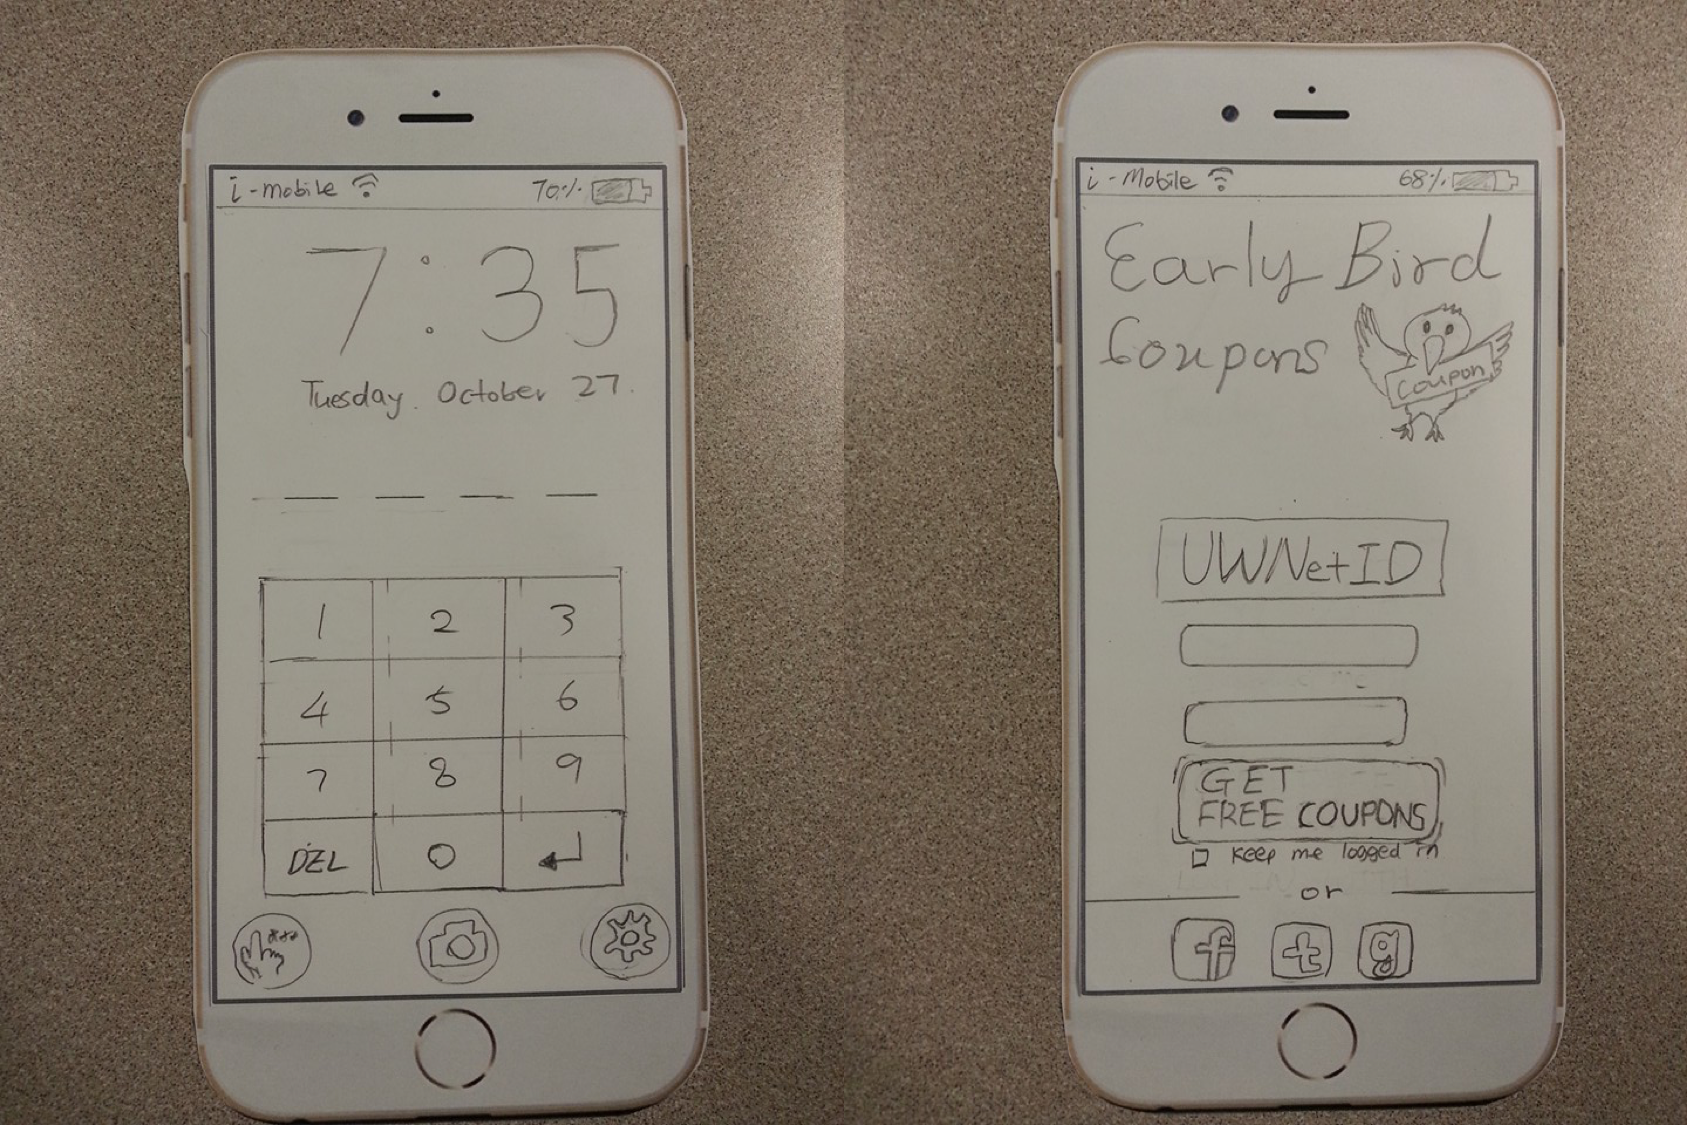 i-mobile 70%
7:35
Tuesday. October 27.
1 2 3
4 5 6
7 8 9
DEL 0
***
i-Mobile 68%
Early Bird
Coupons
Coupon
UWNetID
GET
FREE COUPONS
keep me logged in
or
f t g